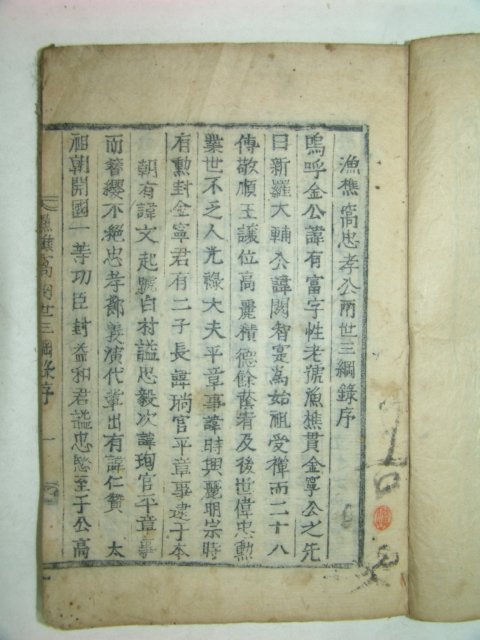 漁樵窩忠孝公兩世三綱錄序
嗚呼金公諱有富字性老號漁樵貫金寧公之先
曰新羅大輔公諱閼智寔爲始祖受禪而二十八
傳敬順王讓位高麗積德餘蔭者及後世偉忠勳
業世不乏人光祿大夫平章事諱時興麗明宗時
有勳封金寧君有二子長諱琑官平章事逮于本
朝有諱文起號白村謚忠毅次諱珣官平章事
而簪纓不絶忠孝節義演代輩出有諱仁贊 太
祖朝開國一等功臣封益和君謚忠愍至于公高
漁樵窩兩世三綱錄序 一